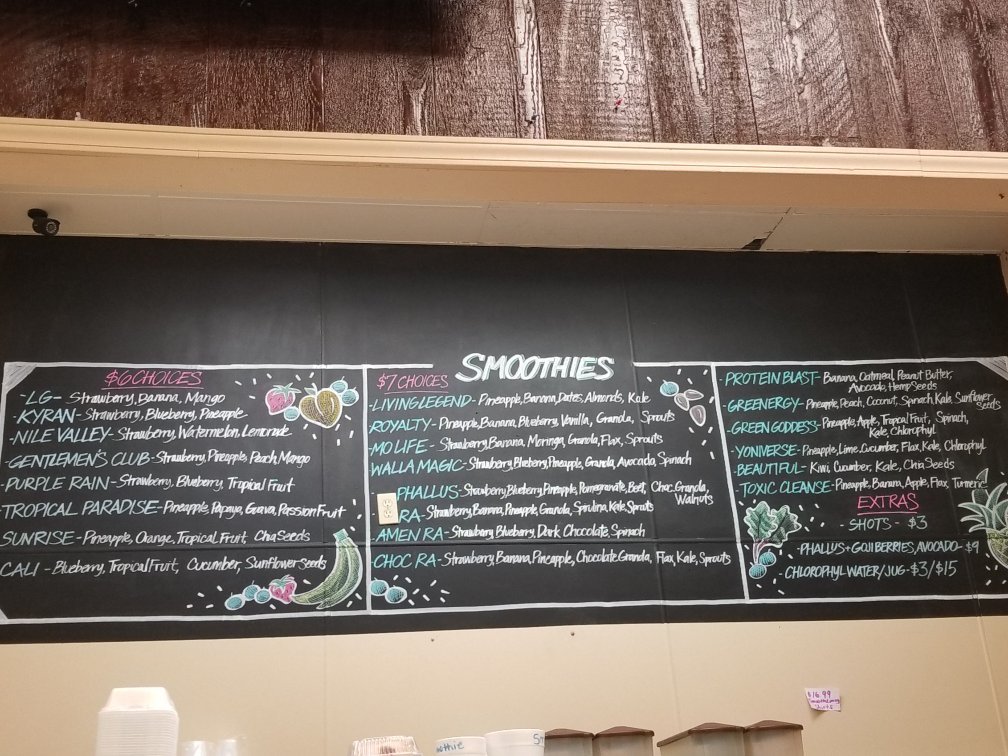 SMOOTHIES
$6 CHOICES
-LG- Strawberry, Banana, Mango
-KYRAN- Strawberry, Blueberry, Pineapple
-NILE VALLEY- Strawberry, Watermelon, Lemonade
-GENTLEMEN'S CLUB- Strawberry, Pineapple, Peach, Mango
-PURPLE RAIN- Strawberry, Blueberry, Tropical Fruit
-TROPICAL PARADISE- Pineapple, Papaya, Guava, Passion Fruit
SUNRISE- Pineapple, Orange, Tropical Fruit Chia Seeds
CALI - Blueberry, Tropical Fruit, Cucumber, Sunflower Seeds
$7 CHOICES
-LIVING LEGEND- Pineapple, Banana, Dates, Almonds, Kale
ROYALTY- Pineapple, Banana, Blueberry, Vanilla, Granola, Sprouts
MO LIFE - Strawberry, Banana, Moringa, Granola, Flax, Sprouts
WALLA MAGIC- Strawberry, Blueberry, Pineapple, Granola, Avocado, Spinach
PHALLUS- Strawberry, Blueberry, Pineapple, Pomegranate, Beet, Choc Granola,
Walnuts
RA- Strawberry, Banana, Pineapple, Granola, Spirulina, Kale, Sprouts
AMEN RA- Strawberry, Blueberry, Dark Chocolate, Spinach
CHOC RA- Strawberry, Banana, Pineapple, Chocolate Granola, Flax, Kale, Sprouts
-PROTEIN BLAST- Banana, Oatmeal, Peanut Butter,
Avocado, Hemp Seeds
-GREENERGY- Pineapple, Peach, Coconut, Spinach, Kale, Sunflower
Seeds
-GREEN GODDESS- Pineapple, Apple, Tropical Fruit, Spinach,
Kale, Chlorophyl
YONIVERSE- Pineapple, Lime, Cucumber, Flax, Kale, Chlorophyl
BEAUTIFUL- Kiwi, Cucumber, Kale, Chia Seeds
TOXIC CLEANSE- Pineapple, Banana, Apple, Flax, Turmeric
EXTRAS
-SHOTS - $3
-PHALLUS + GOJI BERRIES, AVOCADO- $9
-CHLOROPHYL WATER/JUG- $3/$15
$16.99